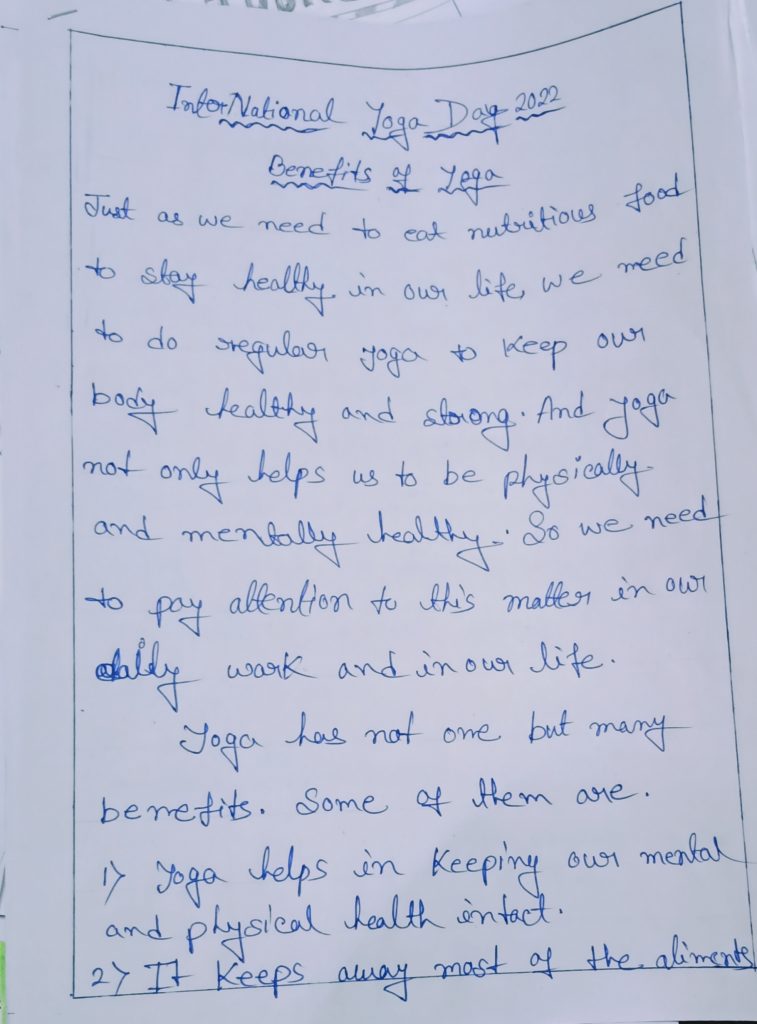 InterNational Yoga Day 2022
Benefits of Yoga
Just as we need to eat nutritious food
to stay healthy in our life, we need
to do regular yoga to keep our
body healthy and strong. And yoga
not only helps us to be physically
and mentally healthy. So we need
to pay attention to this matter in our
daily work and in our life.
Yoga has not one but many
benefits. Some of them are.
1) Yoga helps in keeping our mental
and physical health intact.
2) It keeps away most of the aliments